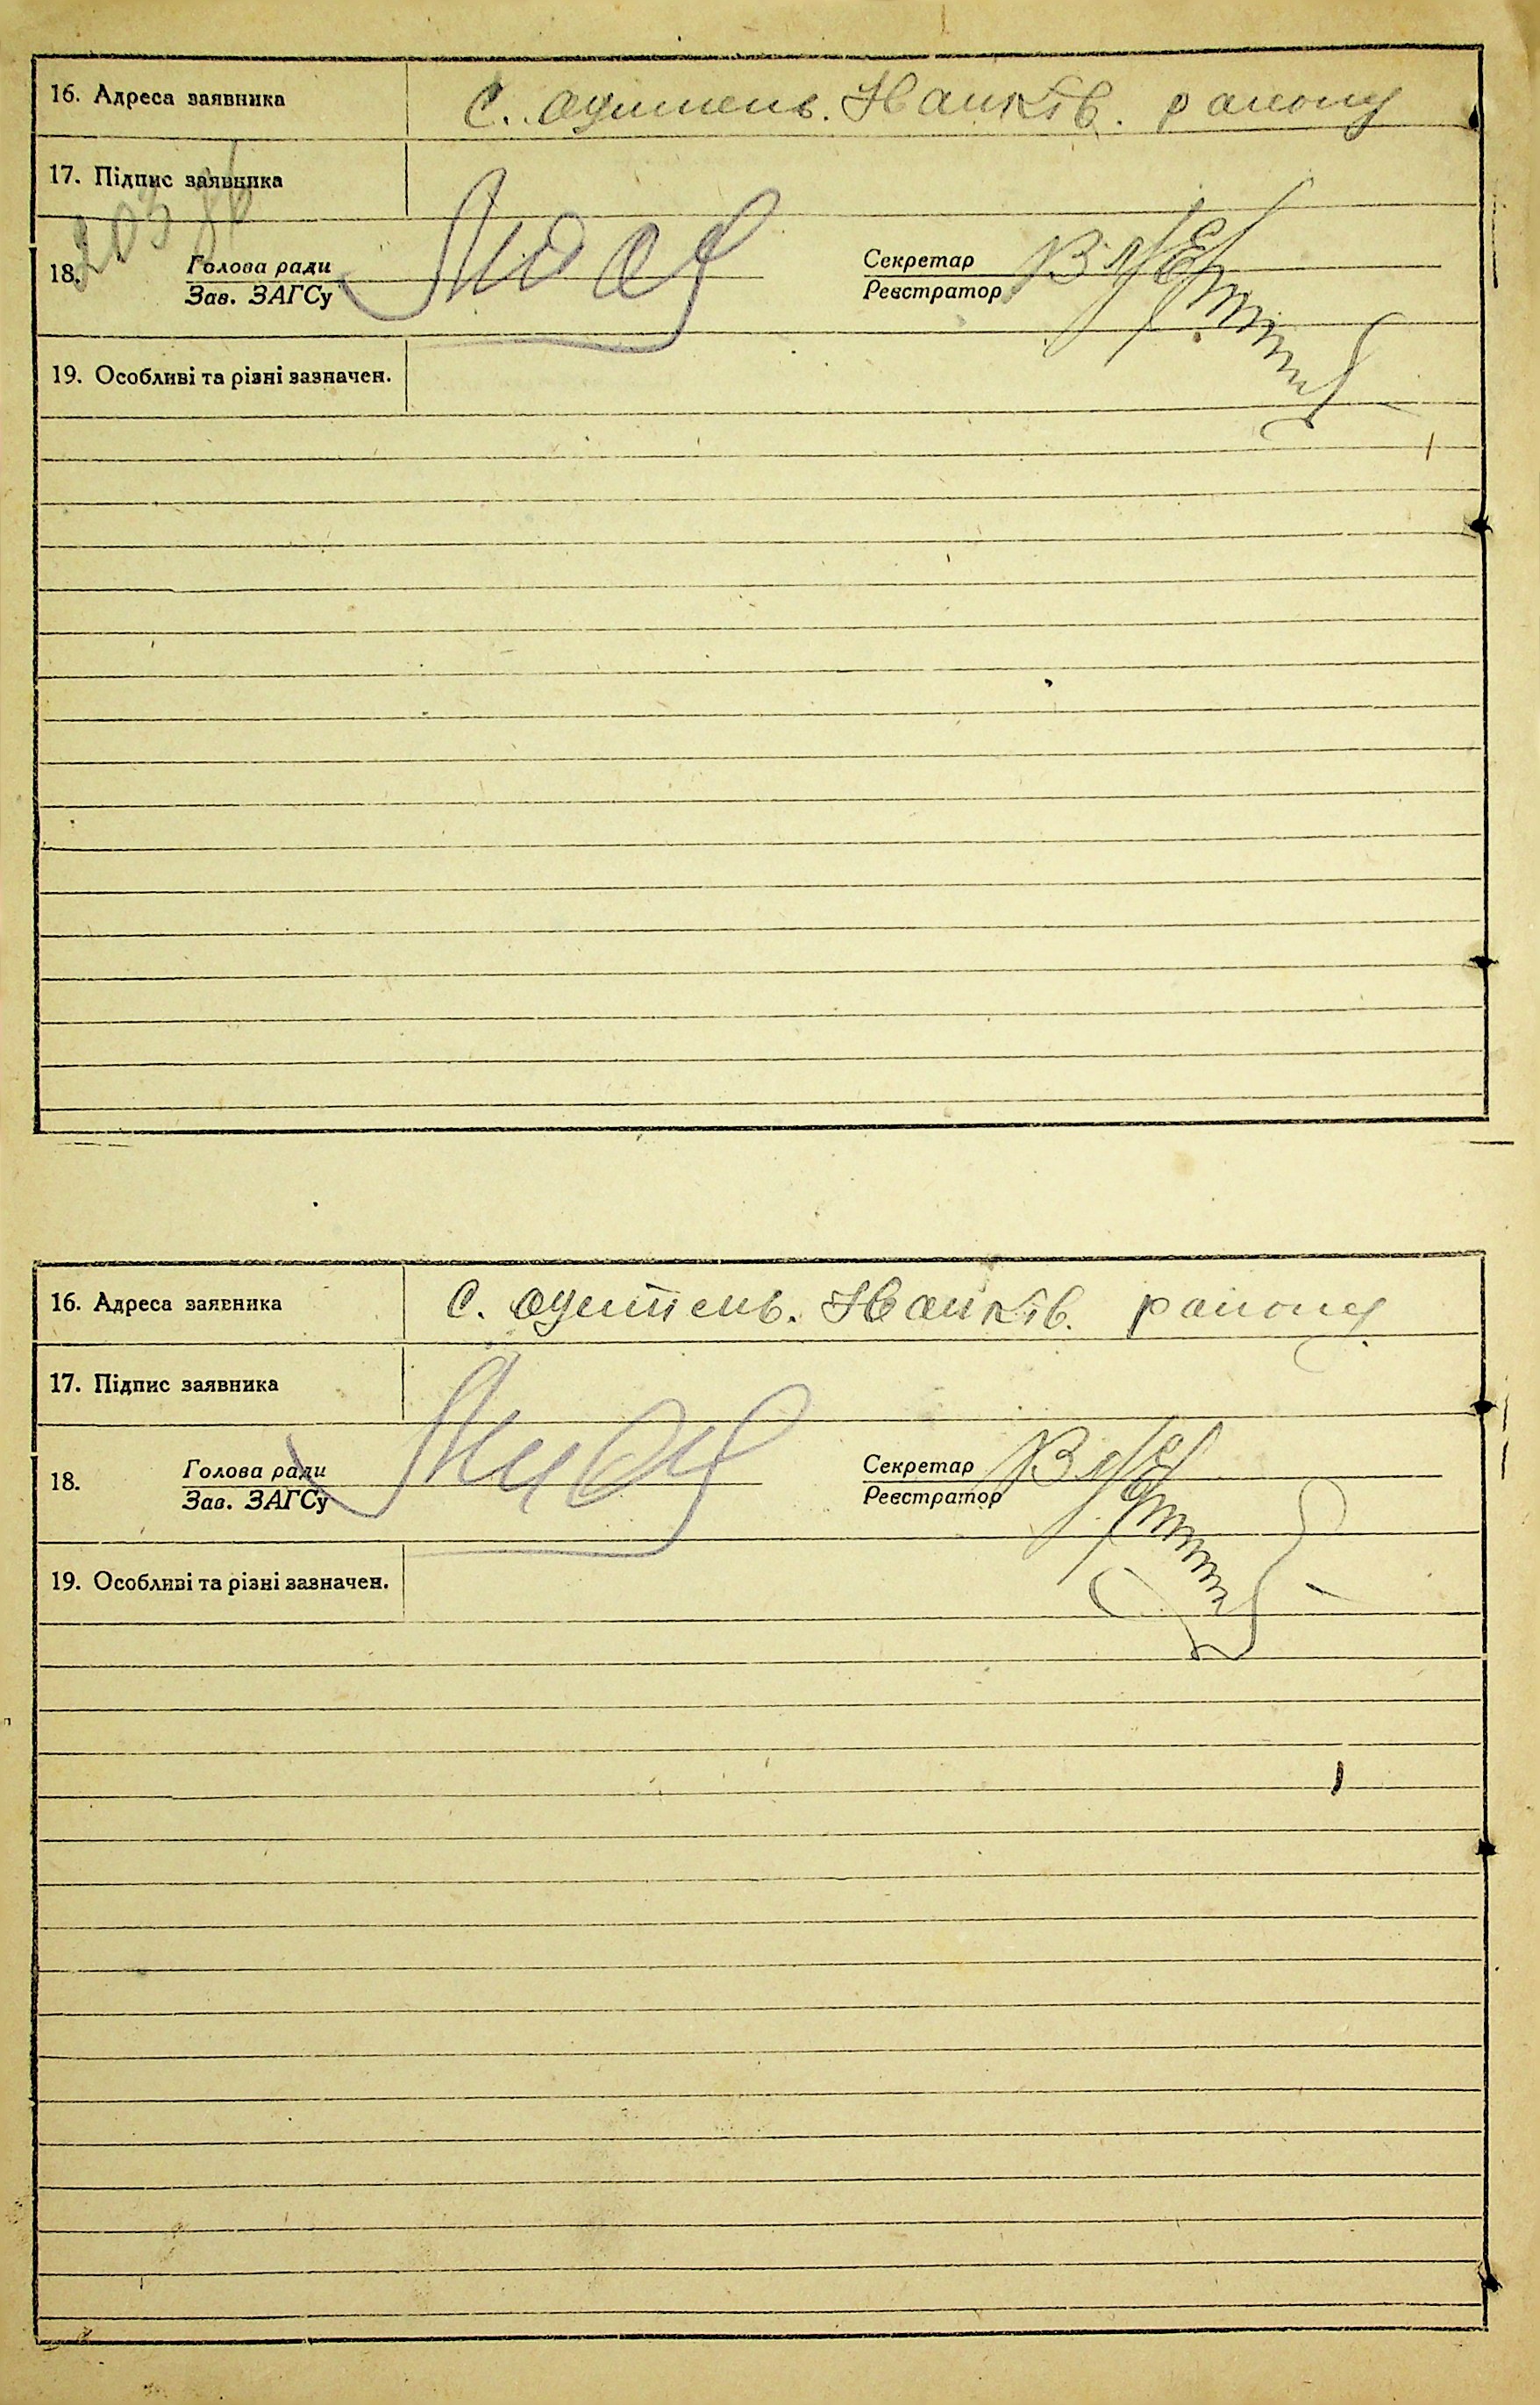 16. Адреса заявника С. Оситень. Іванків. району
17. Підпис заявника
203
18. Голова ради Секретар
Зав. ЗАГСу Реєстратор
19. Особливі та різні зазначен.
16. Адреса заявника С. Оситень. Іванків. району
17. Підпис заявника
18. Голова ради Секретар
Зав. ЗАГСу Реєстратор
19. Особливі та різні зазначен.